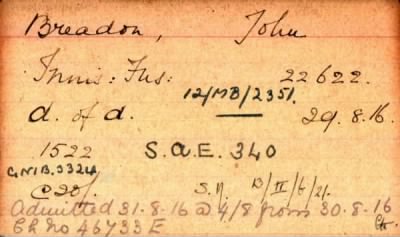 Breadon, John
Innis: Fus: 22622.
12/MB/2351.
d. of d. 29.8.16.
1522 S.a.E. 340
G.M.B. 5324
S.N. B/II/6/21.
Admitted 31.8.16 @ 4/8 from 30.8.16
Ch no 46733 E